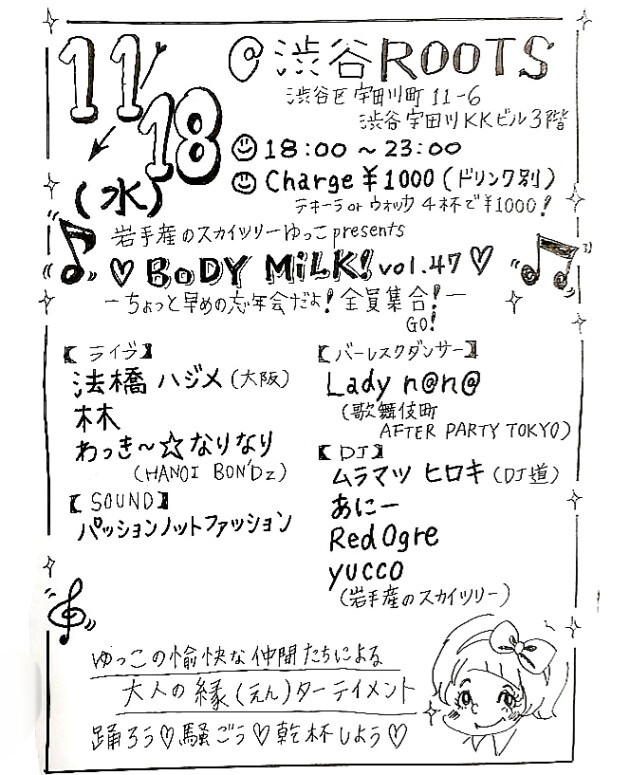 11/18
(水)
@渋谷ROOTS
渋谷区宇田川町11-6
渋谷宇田川KKビル3階
18:00~23:00
Charge¥1000(ドリンク別)
テキーラorウォッカ4杯で¥1000!
岩手産のスカイツリーゆっこpresents
♡BODY MiLK! vol.47♡
ーちょっと早めの忘年会だよ!全員集合!ー
GO!
【ライヴ】
法橋ハジメ(大阪)
木木
わっき~☆なりなり
(HANOI BON'Dz)
【SOUND】
パッションノットファッション
【バーレスクダンサー】
Lady n@n@
(歌舞伎町
AFTER PARTY TOKYO)
【DJ】
ムラマツ ヒロキ(DJ道)
あにー
Red Ogre
yucco
(岩手産のスカイツリー)
ゆっこの愉快な仲間たちによる
大人の縁(えん)ターテイメント
踊ろう♡騒ごう♡乾杯しよう♡